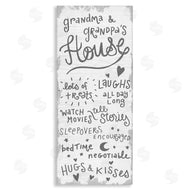 grandma &
grandpa's
House
lots of
treats
LAUGHS
ALL DAY
long
WATCH
MOVIES
tell
stories
SLEEPOVERS
encouraged
BEDTIME
negotiable
HUGS & KISSES